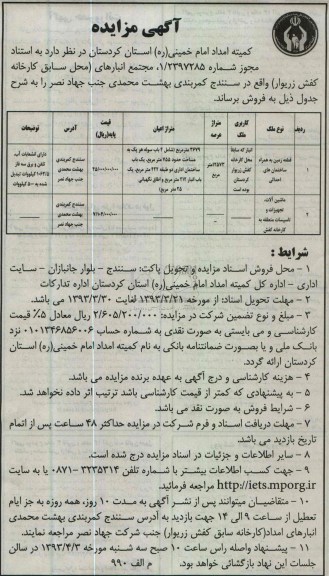 آگهی مزایده
کمیته امداد امام خمینی(ره) استان کردستان در نظر دارد به استناد
مجوز شماره ۱/۲۳۹۷۲۸۵، مجتمع انبارهای (محل سابق کارخانه
کفش زریوار) واقع در سنندج کمربندی بهشت محمدی جنب جهاد نصر را به شرح
جدول ذیل به فروش برساند.
ردیف نوع ملک کاربری ملک متراژ عرصه متراژ اعیان قیمت پایه(ریال) آدرس توضیحات
قطعه زمین به همراه ساختمان های احداثی
سنندج کمربندی بهشت محمدی جنب جهاد نصر
۲ ماشین آلات، تجهیزات و تاسیسات متعلقه به کارخانه کفش
سنندج کمربندی بهشت محمدی جنب جهاد نصر
شرایط :
۱ – محل فروش اسناد مزایده و تحویل پاکت: سنندج – بلوار جانبازان – سایت
اداری – اداره کل کمیته امداد امام خمینی(ره) استان کردستان اداره تدارکات
۲ – مهلت تحویل اسناد: از مورخه ۱۳۹۳/۳/۲۱ لغایت ۱۳۹۳/۳/۳۰ می باشد.
۳ – مبلغ و نوع تضمین شرکت در مزایده: ۲/۶۰۵/۲۰۰/۰۰۰ ریال معادل ۵٪ قیمت
کارشناسی و می بایستی به صورت نقدی به شماره حساب ۰۱۰۱۳۴۶۸۵۶۰۰۶ نزد
بانک ملی و یا بصورت ضمانتنامه بانکی به نام کمیته امداد امام خمینی(ره) استان
کردستان ارائه گردد.
۴ – هزینه کارشناسی و درج آگهی به عهده برنده مزایده می باشد.
۵ – به پیشنهادی که کمتر از قیمت کارشناسی باشد ترتیب اثر داده نخواهد شد.
۶ – شرایط فروش به صورت نقد می باشد.
۷ – مهلت دریافت اسناد و فرم شرکت در مزایده حداکثر ۴۸ ساعت پس از اتمام
تاریخ بازدید می باشد.
۸ – سایر اطلاعات و جزئیات در اسناد مزایده درج شده است.
۹ – جهت کسب اطلاعات بیشتر با شماره تلفن ۳۲۳۵۳۱۴ -۰۸۷۱ یا به سایت
http://iets.mporg.ir مراجعه فرمائید.
۱۰ – متقاضیان میتوانند پس از نشر آگهی به مدت ۱۰ روز، همه روزه به جز ایام
تعطیل از ساعت ۹ الی ۱۴ جهت بازدید به آدرس سنندج کمربندی بهشت محمدی
انبارهای امداد(کارخانه سابق کفش زریوار) جنب شرکت جهاد نصر مراجعه نمایند.
۱۱ – پیشنهاد واصله راس ساعت ۱۰ صبح سه شنبه مورخه ۱۳۹۳/۴/۳ در سالن
جلسات این نهاد بازگشائی خواهد بود. م الف ۹۹۰